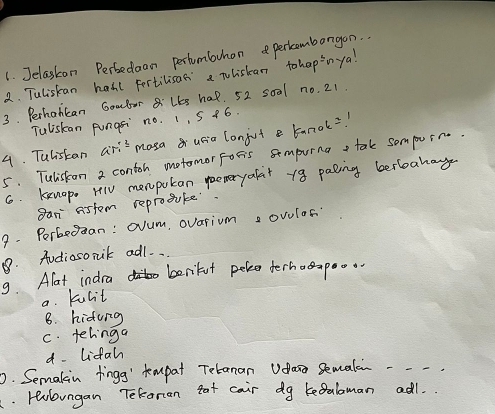 1. Jelaskan Perbedaan pertumbuhan & perkembangan..
2. Tuliskan hasil fertilisasi & tuliskan tahap²nya!
3. Perhatikan Gambar di Lks hal. 52 soal no. 21.
Tuliskan fungsi no. 1, 5 & 6.
4. Tuliskan ciri² masa di usia lanjut & kanak²!
5. Tuliskan 2 contoh metamorfosis sempurna & tak sempurna.
6. Kenapa HIV merupakan penyakit yg paling berbahaya
dari sistem reproduksi.
7. Perbedaan : Ovum, ovarium & ovulasi.
8. Audiosonik adl...
9. Alat indra berikut peka terhadap....
a. kulit
b. hidung
c. telinga
d. lidah
0. Semakin tinggi tempat Tekanan Udara semakin - - - -
. Hubungan Tekanan zat cair dg kedalaman adl..